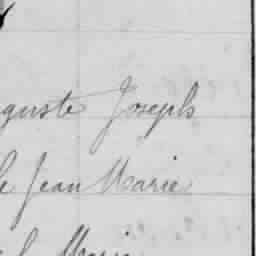 guste Joseph
le Jean Marie
Marie